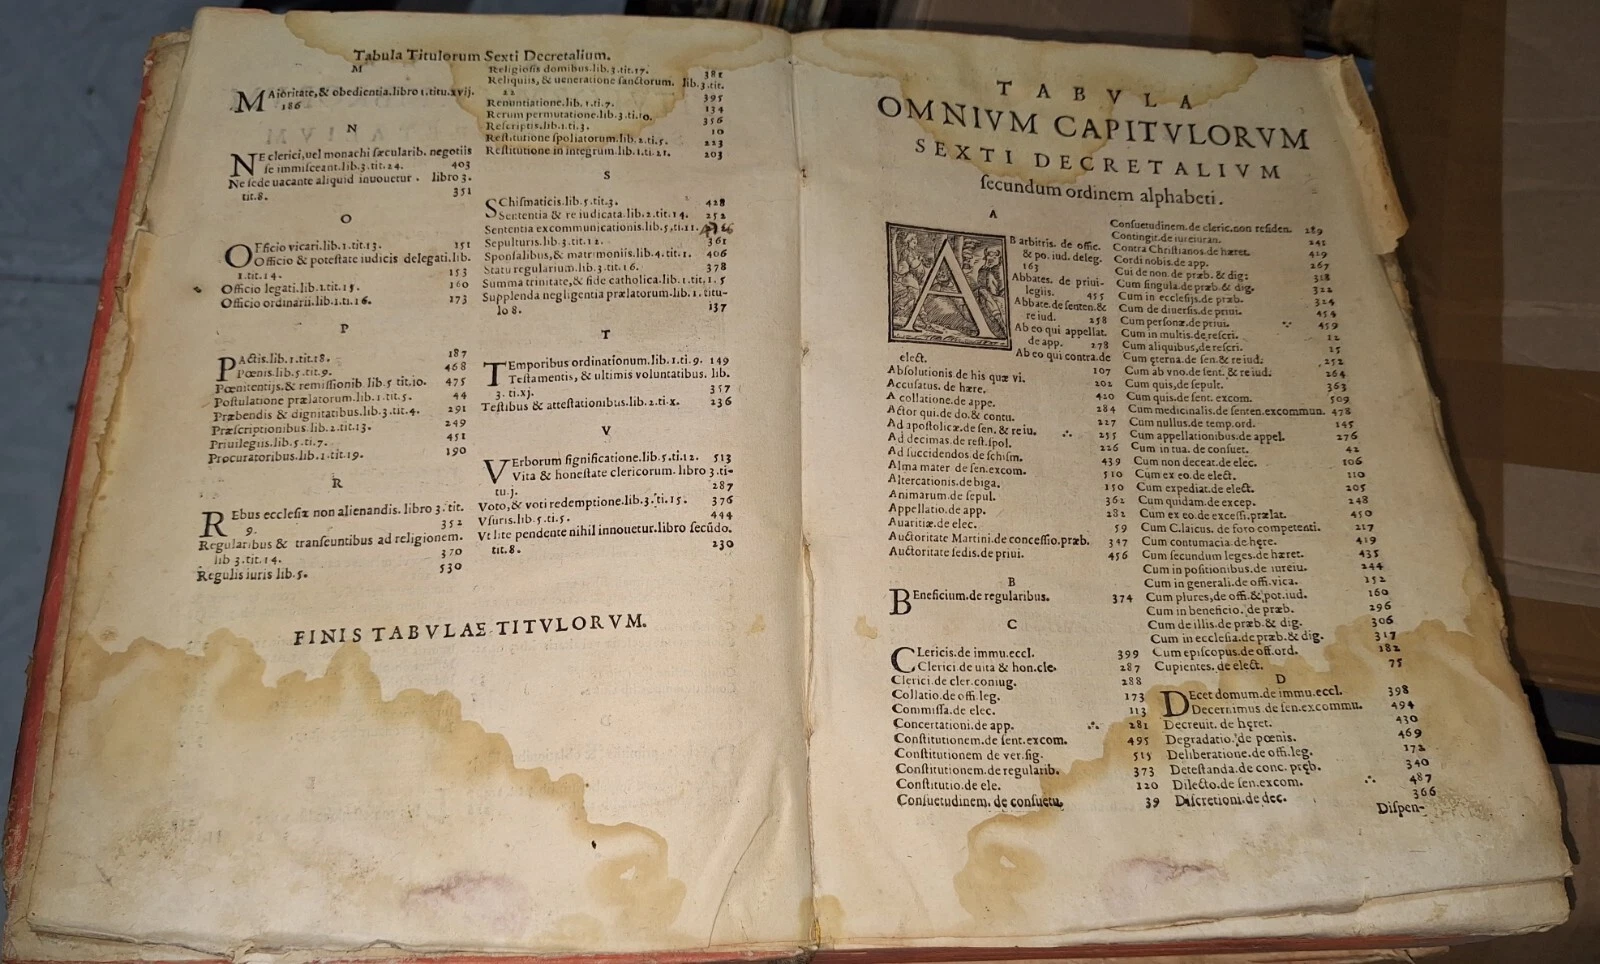 Tabula Titulorum Sexti Decretalium.
M
MAioritate,& obedientia.libro 1.titu.xvij.
186
N
NE clerici,uel monachi sæcularib. negotiis
se immisceant.lib.3.tit.24. 403
Ne sede uacante aliquid inuouetur. libro 3.
tit.8. 351
O
OFficio vicari.lib.1.tit.13. 151
Officio & potestate iudicis delegati.lib.
1.tit.14. 153
Officio legati.lib.1.tit.15. 160
Officio ordinarii.lib.1.ti.16. 173
P
PActis.lib.1.tit.18. 187
Pœnis.lib.5.tit.9. 468
Pœnitentijs,& remissionib.lib.5 tit.10. 475
Postulatione prælatorum.lib.1.tit.5. 44
Præbendis & dignitatibus.lib.3.tit.4. 291
Præscriptionibus.lib.2.tit.13. 249
Priuilegiis.lib.5.ti.7. 451
Procuratoribus.lib.1.tit.19. 190
R
REbus ecclesiæ non alienandis. libro 3.tit.
9. 352
Regularibus & transeuntibus ad religionem.
lib 3.tit.14. 370
Regulis iuris lib.5. 530
Religiosis domibus.lib.3.tit.17. 381
Reliquiis, & ueneratione sanctorum. lib.3.tit.
22 395
Renuntiatione.lib.1.ti.7. 134
Rerum permutatione.lib.3.ti.10. 356
Rescriptis.lib.1.ti.3. 10
Restitutione spoliatorum.lib.2.ti.5. 223
Restitutione in integrum.lib.1.ti.21. 203
S
SChismaticis.lib.5.tit.3. 428
Sententia & re iudicata.lib.2.tit.14. 252
Sententia excommunicationis.lib.5.ti.11.
Sepulturis.lib.3.tit.12. 361
Sponsalibus,& matrimoniis.lib.4.tit.1. 406
Statu regularium.lib.3.tit.16. 378
Summa trinitate,& fide catholica.lib.1.tit,1. 5
Supplenda negligentia prælatorum.lib.1.titu-
lo 8. 137
T
TEmporibus ordinationum.lib.1.ti.9. 149
Testamentis, & ultimis voluntatibus. lib.
3.ti.xj. 357
Testibus & attestationibus.lib.2.ti.x. 236
V
VErborum significatione.lib.5.ti.12. 513
Vita & honestate clericorum. libro 3.ti-
tu.j. 287
Voto,& voti redemptione.lib.3.ti.15. 376
Vsuris.lib.5.ti.5. 444
Vt lite pendente nihil innouetur.libro secūdo.
tit.8. 230
FINIS TABVLAE TITVLORVM.
TABVLA
OMNIVM CAPITVLORVM
SEXTI DECRETALIVM
secundum ordinem alphabeti.
A
AB arbitris. de offic.
& po. iud. deleg.
163
Abbates. de priui-
legiis. 455
Abbate.de senten.&
re iud. 258
Ab eo qui appellat.
de app. 278
Ab eo qui contra.de
elect. 107
Absolutionis de his quæ vi. 202
Accusatus. de hære. 420
A collatione.de appe. 284
Actor qui.de do.& contu. 227
Ad apostolicæ.de sen.& re iu. 255
Ad decimas.de rest.spol. 226
Ad succidendos de schism. 439
Alma mater de sen.excom. 510
Altercationis.de biga. 150
Animarum.de sepul. 362
Appellatio.de app. 282
Auaritiæ.de elec. 59
Auctoritate Martini.de concessio.præb. 347
Auctoritate sedis.de priui. 456
B
BEneficium.de regularibus. 374
C
CLericis.de immu.eccl. 399
Clerici.de uita & hon.cle. 287
Clerici.de cler.coniug. 288
Collatio.de offi.leg. 173
Commissa.de elec. 113
Concertationi.de app. 281
Constitutionem.de sent.excom. 495
Constitutionem de ver.sig. 515
Constitutionem.de regularib. 373
Constitutio.de ele. 120
Consuetudinem. de consuetu. 39
Consuetudinem.de cleric.non residen. 289
Contingit.de iureiuran. 241
Contra Christianos.de hæret. 419
Cordi nobis.de app. 267
Cui de non.de præb.& dig: 318
Cum singula.de præb.& dig. 322
Cum in ecclesijs.de præb. 324
Cum de diuersis.de priui. 454
Cum personæ.de priui. 459
Cum in multis.de rescri. 12
Cum aliquibus,de rescri. 15
Cum æterna.de sen.& re iud: 252
Cum ab vno.de sent.& re iud. 264
Cum quis,de sepult. 363
Cum quis.de sent. excom. 509
Cum medicinalis.de senten.excommun. 478
Cum nullus.de temp.ord. 145
Cum appellationibus.de appel. 276
Cum in tua. de consuet. 42
Cum non deceat.de elec. 106
Cum ex eo.de elect. 110
Cum expediat.de elect. 205
Cum quidam.de excep. 248
Cum ex eo de excessi.prælat. 450
Cum C.laicus. de foro competenti. 217
Cum contumacia.de hęre. 419
Cum secundum leges.de hæret. 435
Cum in positionibus.de iureiu. 244
Cum in generali.de offi.vica. 152
Cum plures,de offi.& pot.iud. 160
Cum in beneficio. de præb. 296
Cum de illis.de præb.& dig. 306
Cum in ecclesia.de præb.& dig. 317
Cum episcopus.de off.ord. 182
Cupientes. de elect. 75
D
DEcet domum.de immu.eccl. 398
Decernimus.de sen.excommu. 494
Decreuit.de hęret. 430
Degradatio.de pœnis. 469
Deliberatione.de offi.leg. 172
Detestanda.de conc.pręb. 340
Dilecto.de sen.excom. 487
Discretioni.de dec. 366
Dispen-